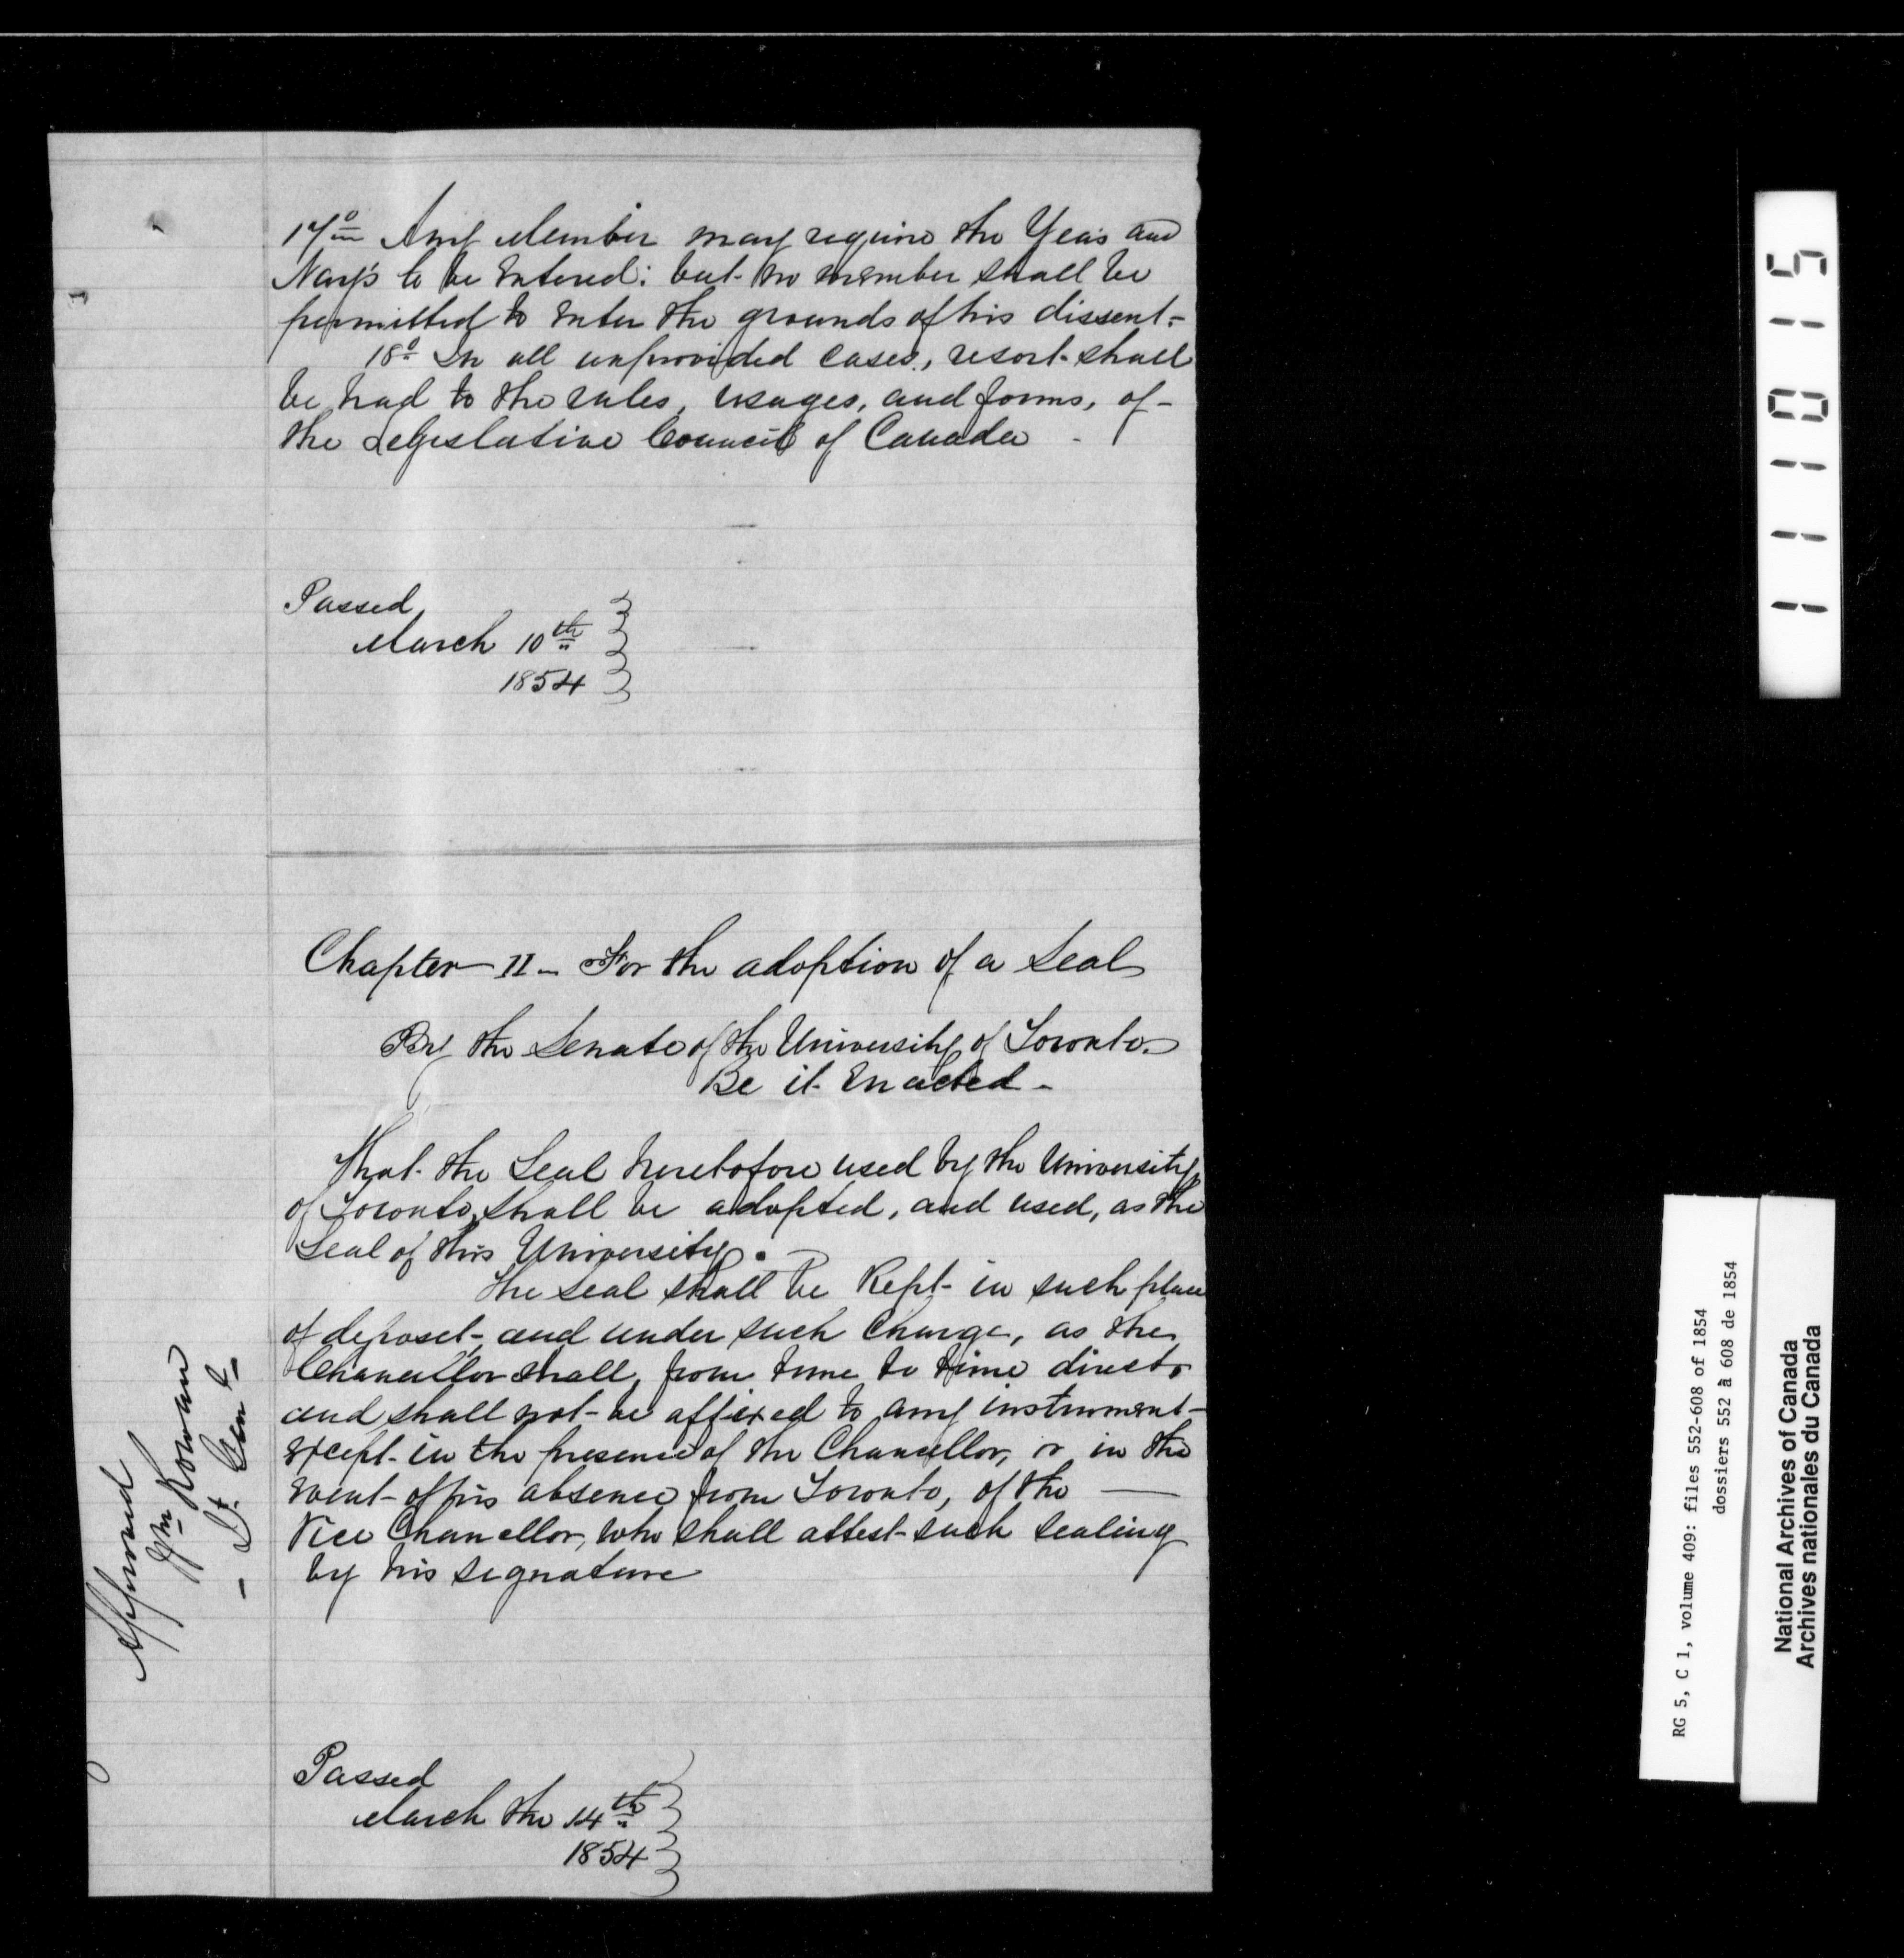 17º Any Member may require the Yeas and
Nays to be Entered: but no member shall be
permitted to Enter the grounds of his dissent.
18º In all unprovided Cases, resort shall
be had to the rules, usages, and forms, of
the Legislative Council of Canada -
Passed
March 10th
1854
Chapter II - For the adoption of a Seal
By the Senate of the University of Toronto.
Be it Enacted -
That the Seal heretofore used by the University
of Toronto, shall be adopted, and used, as the
Seal of this University.
The Seal shall be Kept in such place
of deposit and under such Charge, as the
Chancellor shall, from time to time direct,
and shall not be affixed to any instrument
except in the presence of the Chancellor, or in the
Event of his absence from Toronto, of the
Vice Chancellor, who shall attest such Sealing
by his signature
Approved
Wm Rowan
- Lt. Genl -
Passed
March the 14th
1854
111015
RG 5, C 1, volume 409: files 552-608 of 1854
dossiers 552 à 608 de 1854
National Archives of Canada
Archives nationales du Canada